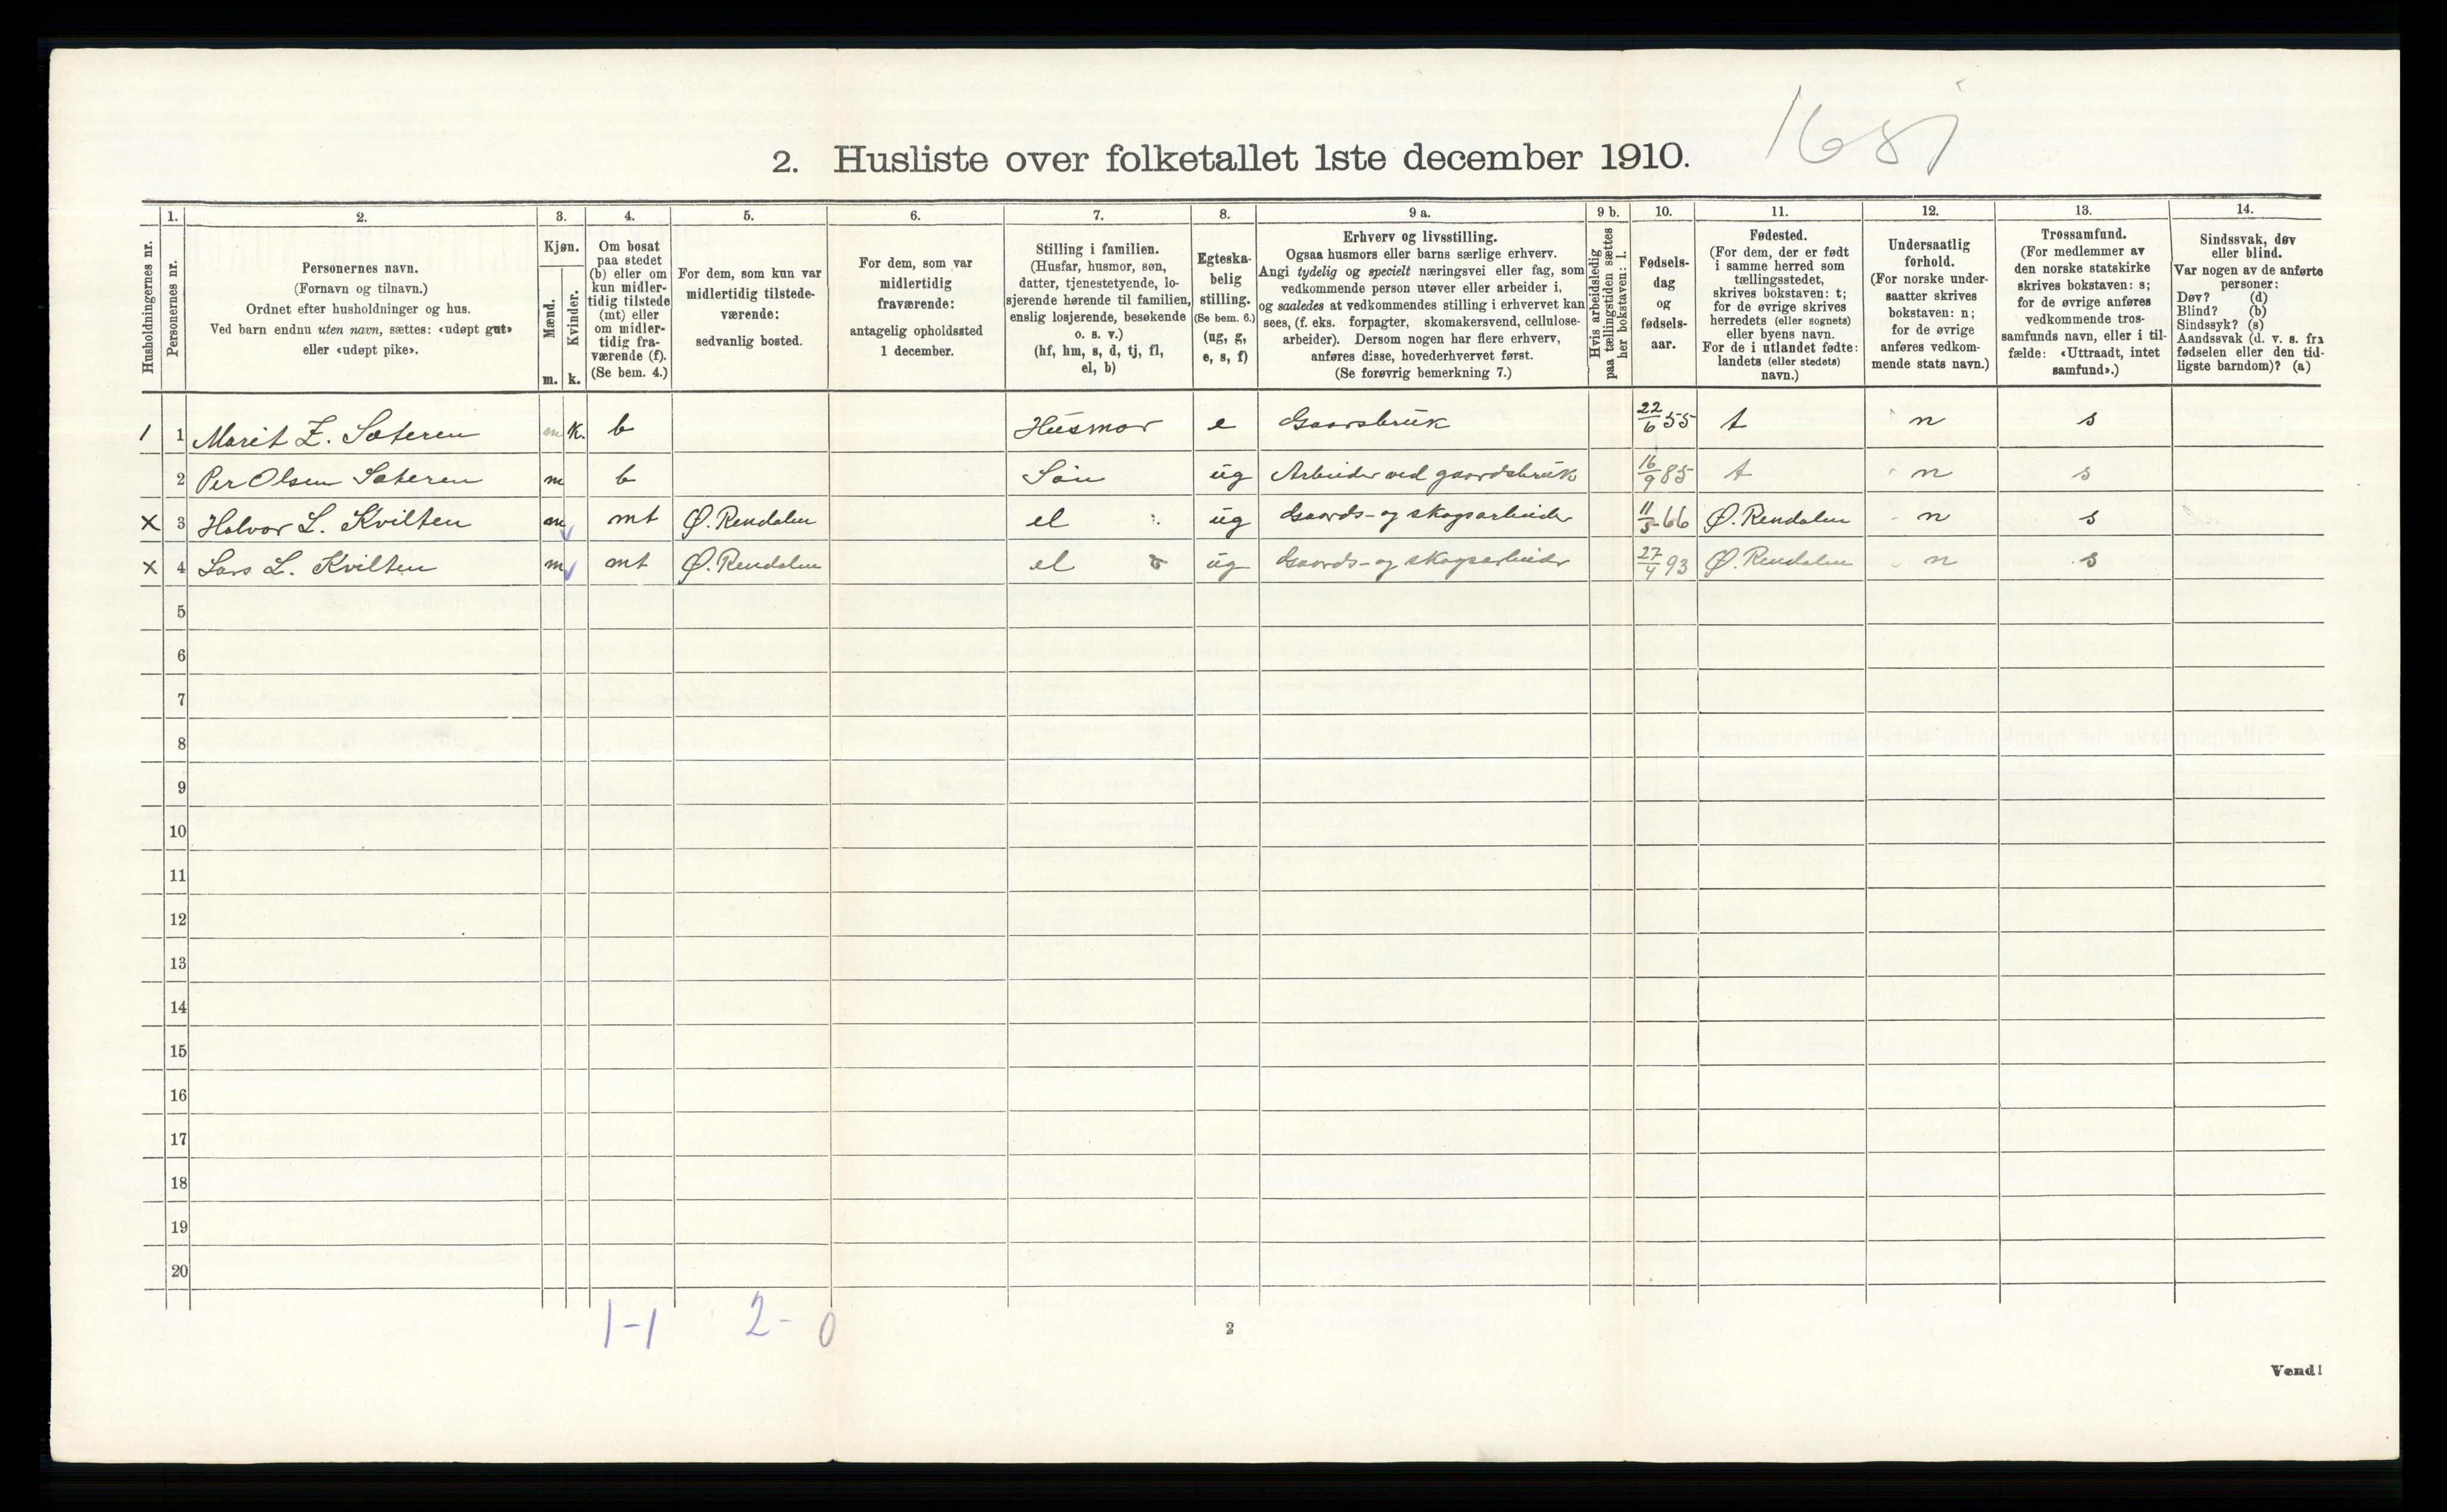 2. Husliste over folketallet 1ste december 1910.
Husholdningernes nr.
1. Personernes nr.
2. Personernes navn.
(Fornavn og tilnavn.)
Ordnet efter husholdninger og hus.
Ved barn endnu uten navn, sættes: «udøpt gut»
eller «udøpt pike».
3. Kjøn.
Mænd. m.
Kvinder. k.
4. Om bosat
paa stedet
(b) eller om
kun midler-
tidig tilstede
(mt) eller
om midler-
tidig fra-
værende (f).
(Se bem. 4.)
5. For dem, som kun var
midlertidig tilstede-
værende:
sedvanlig bosted.
6. For dem, som var
midlertidig
fraværende:
antagelig opholdssted
1 december.
7. Stilling i familien.
(Husfar, husmor, søn,
datter, tjenestetyende, lo-
sjerende hørende til familien,
enslig losjerende, besøkende
o. s. v.)
(hf, hm, s, d, tj, fl,
el, b)
8. Egteska-
belig
stilling.
(Se bem. 6.)
(ug, g,
e, s, f)
9 a. Erhverv og livsstilling.
Ogsaa husmors eller barns særlige erhverv.
Angi tydelig og specielt næringsvei eller fag, som
vedkommende person utøver eller arbeider i,
og saaledes at vedkommendes stilling i erhvervet kan
sees, (f. eks. forpagter, skomakersvend, cellulose-
arbeider). Dersom nogen har flere erhverv,
anføres disse, hovederhvervet først.
(Se forøvrig bemerkning 7.)
9 b. Hvis arbeidsledig
paa tællingstiden sættes
her bokstaven: l.
10. Fødsels-
dag
og
fødsels-
aar.
11. Fødested.
(For dem, der er født
i samme herred som
tællingsstedet,
skrives bokstaven: t;
for de øvrige skrives
herredets (eller sognets)
eller byens navn.
For de i utlandet fødte:
landets (eller stedets)
navn.)
12. Undersaatlig
forhold.
(For norske under-
saatter skrives
bokstaven: n;
for de øvrige
anføres vedkom-
mende stats navn.)
13. Trossamfund.
(For medlemmer av
den norske statskirke
skrives bokstaven: s;
for de øvrige anføres
vedkommende tros-
samfunds navn, eller i til-
fælde: «Uttraadt, intet
samfund».)
14. Sindssvak, døv
eller blind.
Var nogen av de anførte
personer:
Døv? (d)
Blind? (b)
Sindssyk? (s)
Aandssvak (d. v. s. fra
fødselen eller den tid-
ligste barndom)? (a)
1 1 Marit Z. Sæteren m K. b Husmor e Gaarsbruk 22/6 55 t n s
2 Per Olsen Sæteren m b Søn ug Arbeider ved gaardsbruk 16/9 85 t n s
X 3 Halvor L. Kvilten m mt Ø. Rendalen el ug Gaards- og skogsarbeider 11/5 66 Ø. Rendalen n s
X 4 Lars L. Kvilten m mt Ø. Rendalen el ug Gaards- og skogsarbeider 27/4 93 Ø. Rendalen n s
5
6
7
8
9
10
11
12
13
14
15
16
17
18
19
20
1-1 2-0
2
Vend!